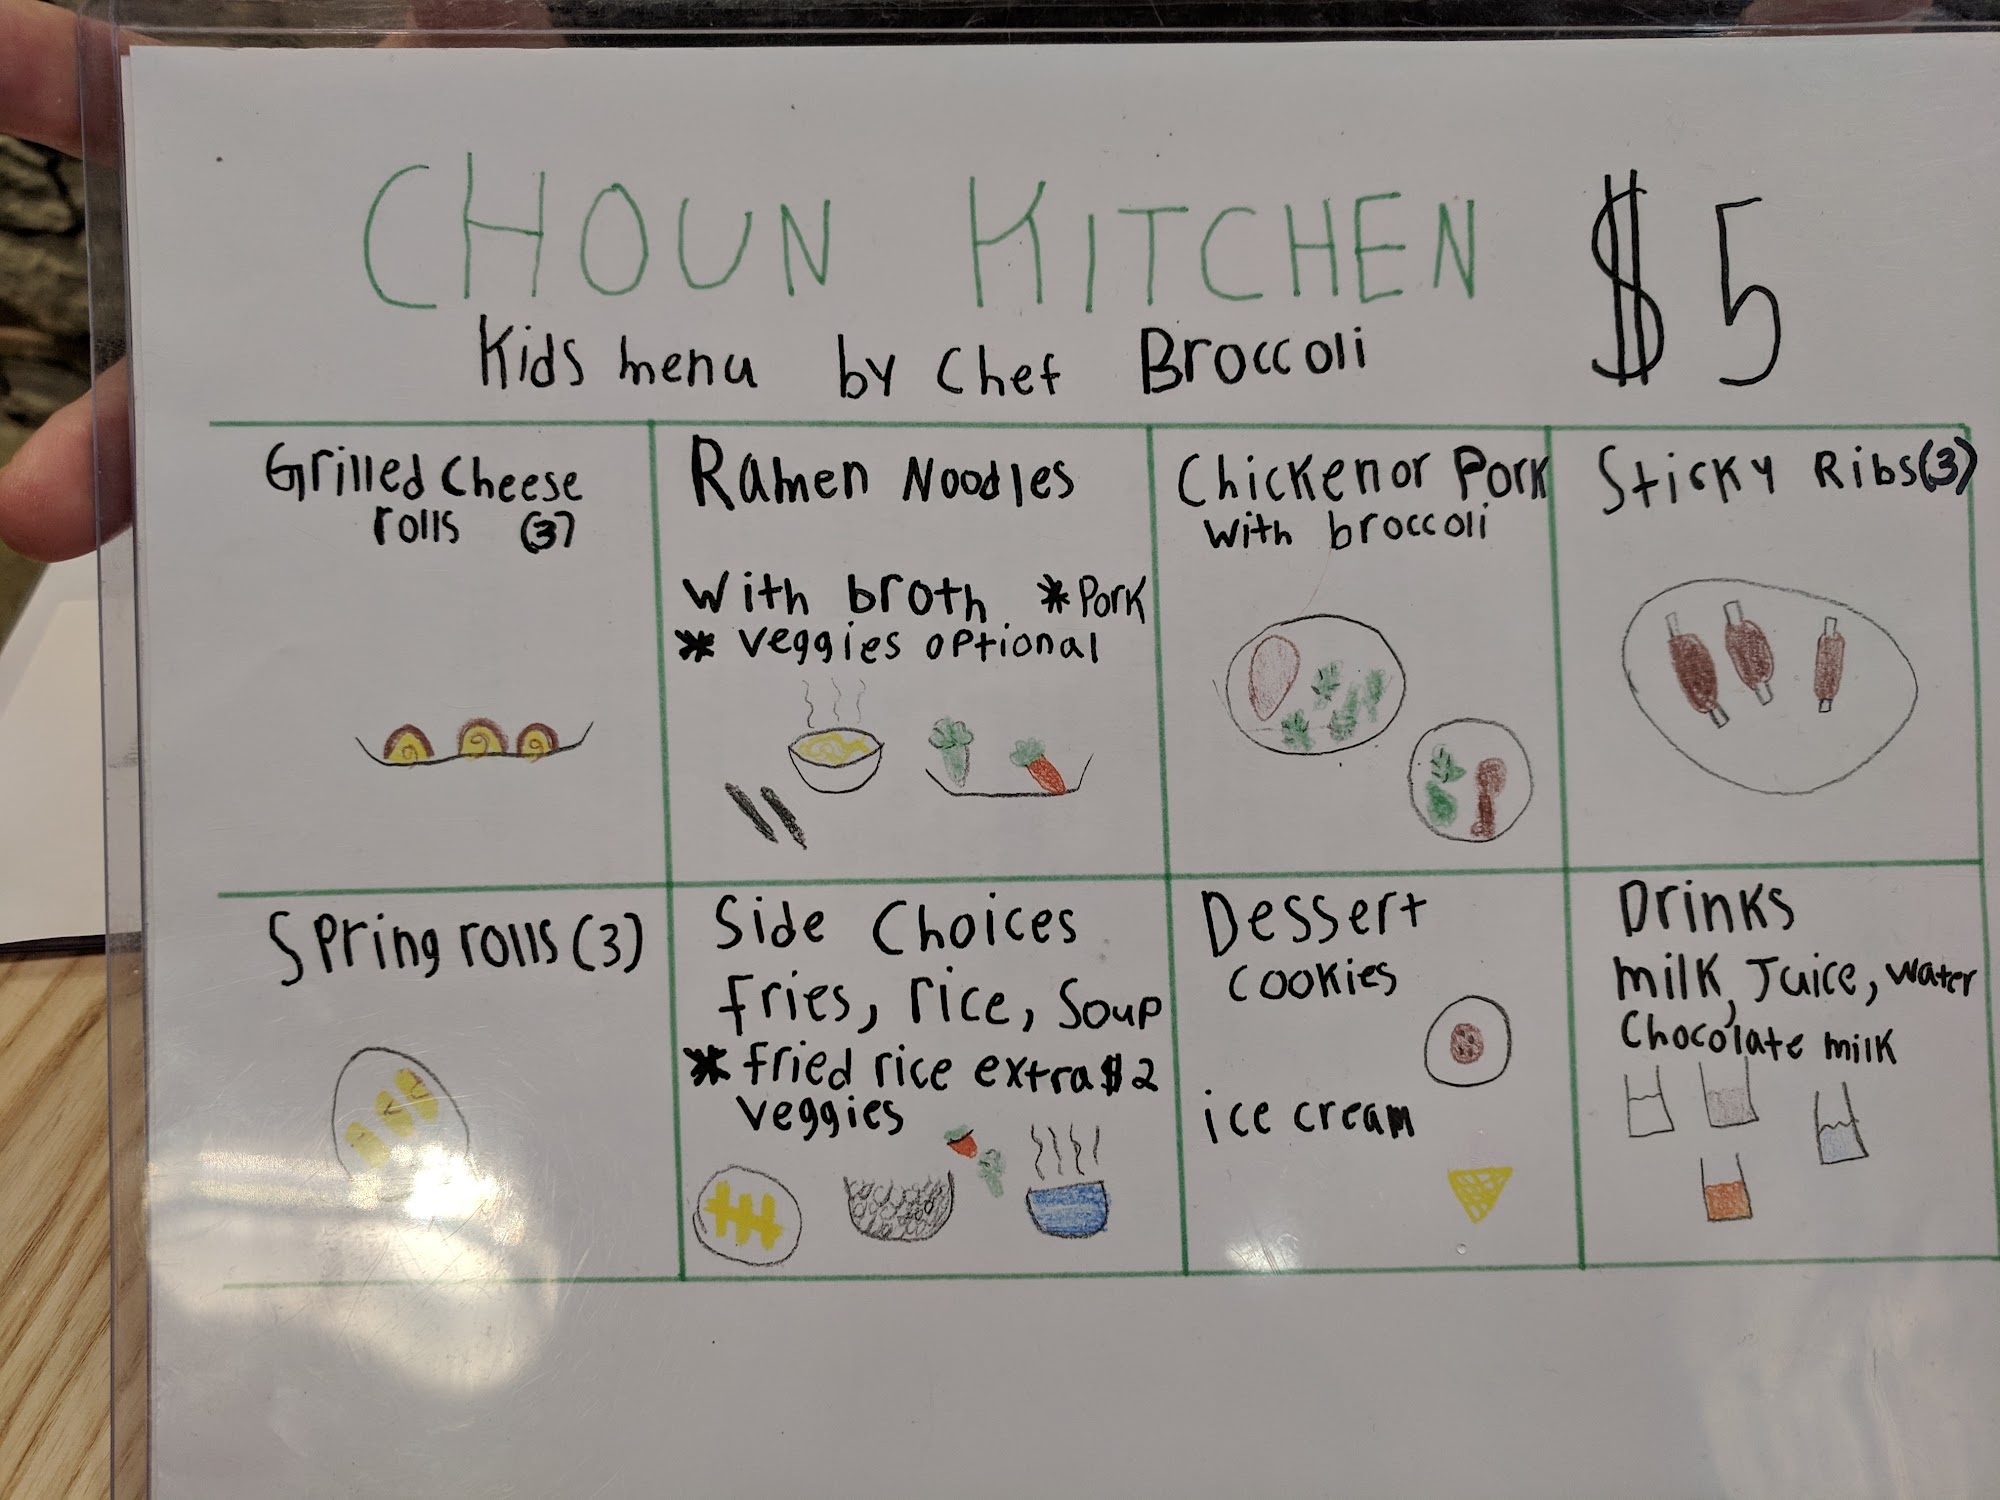 CHOUN KITCHEN $5
Kids menu by Chef Broccoli
Grilled Cheese
rolls (3)
Ramen Noodles
With broth *Pork
* veggies optional
Chicken or Pork
with broccoli
Sticky Ribs (3)
Spring rolls (3)
Side Choices
fries, rice, Soup
* fried rice extra $2
veggies
Dessert
cookies
ice cream
Drinks
milk, Juice, water
Chocolate milk